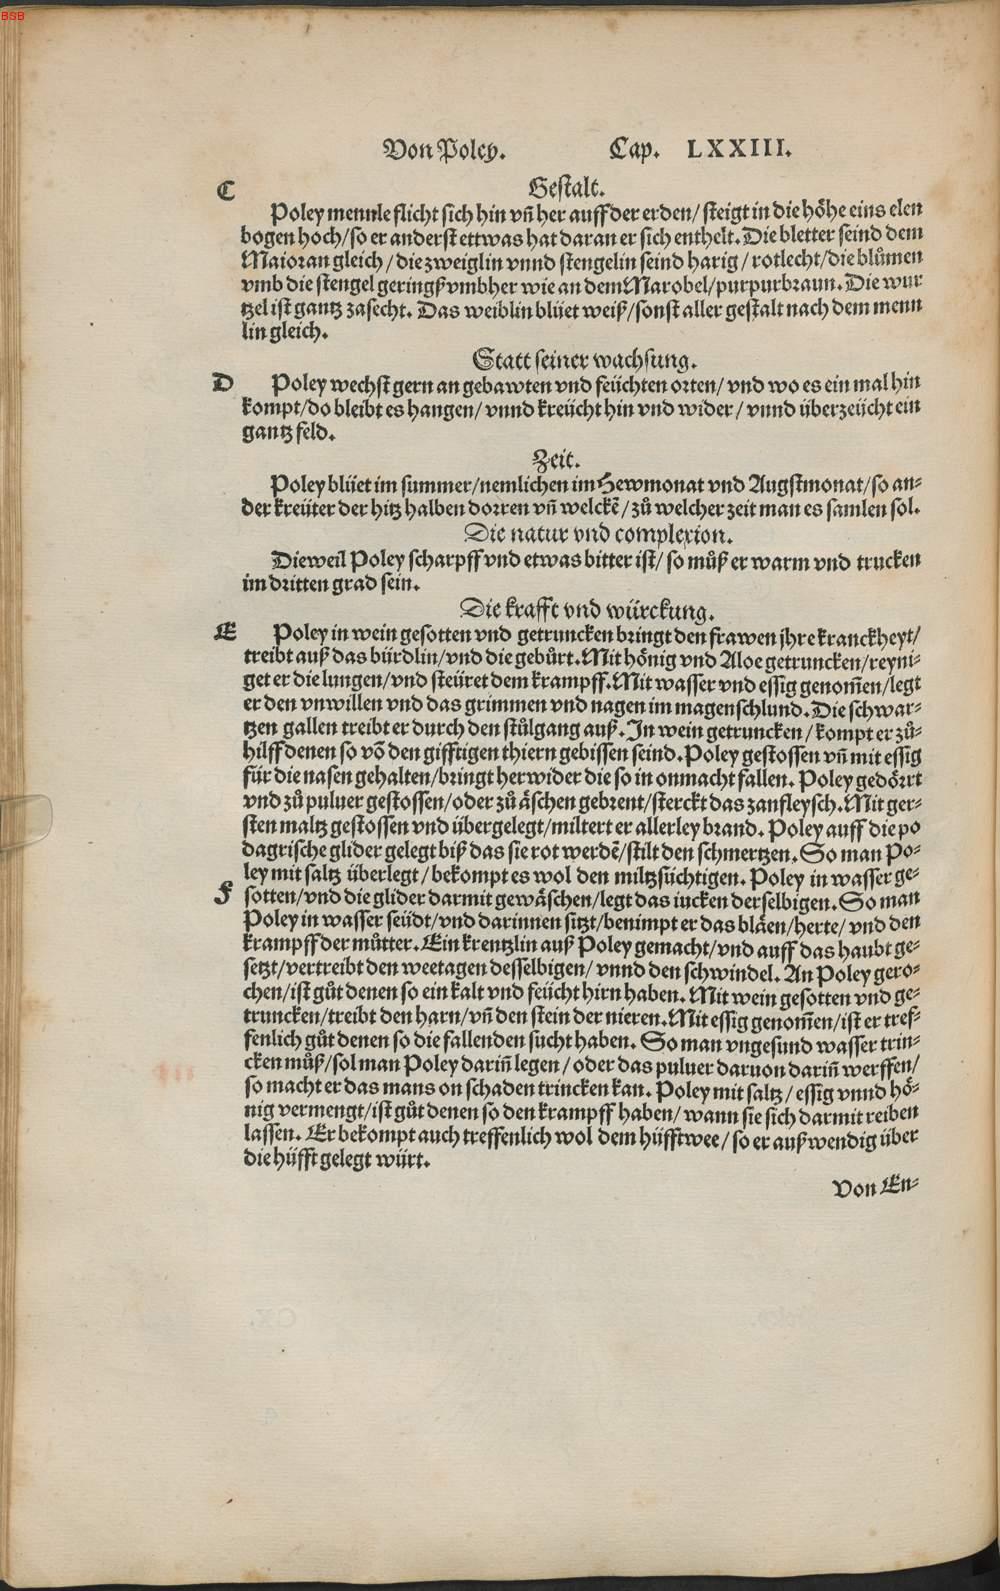 BSB
Von Poley. Cap. LXXIII.
C Gestalt.
Poley mennle flicht sich hin vñ her auff der erden/ steigt in die höhe eins elen
bogen hoch/so er anderst ettwas hat daran er sich enthelt. Die bletter seind dem
Maioran gleich/ die zweiglin vnnd stengelin seind harig/ rotlecht/die blůmen
vmb die stengel geringß vmbher wie an dem Marobel/purpurbraun. Die wur
tzel ist gantz zasecht. Das weiblin blüet weiß/sonst aller gestalt nach dem menn
lin gleich.
Statt seiner wachsung.
D Poley wechst gern an gebawten vnd feüchten orten/ vnd wo es ein mal hin
kompt/do bleibt es hangen/ vnnd kreücht hin vnd wider/ vnnd überzeücht ein
gantz feld.
Zeit.
Poley blüet im summer/nemlichen im Hewmonat vnd Augstmonat/so an⸗
der kreüter der hitz halben dorren vñ welckẽ/ zů welcher zeit man es samlen sol.
Die natur vnd complexion.
Dieweil Poley scharpff vnd etwas bitter ist/ so můß er warm vnd trucken
im dritten grad sein.
Die krafft vnd würckung.
E Poley in wein gesotten vnd getruncken bringt den frawen jhre kranckheyt/
treibt auß das bürdlin/vnd die gebůrt. Mit hönig vnd Aloe getruncken/reyni⸗
get er die lungen/vnd steüret dem krampff. Mit wasser vnd essig genom̃en/legt
er den vnwillen vnd das grimmen vnd nagen im magenschlund. Die schwar⸗
tzen gallen treibt er durch den stůlgang auß. In wein getruncken/ kompt er zů⸗
hilff denen so võ den gifftigen thiern gebissen seind. Poley gestossen vñ mit essig
für die nasen gehalten/bringt herwider die so in onmacht fallen. Poley gedörrt
vnd zů puluer gestossen/oder zů äschen gebrent/sterckt das zanfleysch. Mit ger⸗
sten maltz gestossen vnd übergelegt/miltert er allerley brand. Poley auff die po
dagrische glider gelegt biß das sie rot werdẽ/stilt den schmertzen. So man Po⸗
ley mit saltz überlegt/ bekompt es wol den miltzsüchtigen. Poley in wasser ge⸗
F sotten/vnd die glider darmit gewäschen/legt das iucken derselbigen. So man
Poley in wasser seüdt/vnd darinnen sitzt/benimpt er das bläen/herte/ vnd den
krampff der můtter. Ein krentzlin auß Poley gemacht/vnd auff das haubt ge⸗
setzt/vertreibt den weetagen desselbigen/ vnnd den schwindel. An Poley gero⸗
chen/ist gůt denen so ein kalt vnd feücht hirn haben. Mit wein gesotten vnd ge⸗
truncken/treibt den harn/vñ den stein der nieren. Mit essig genom̃en/ist er tref⸗
fenlich gůt denen so die fallenden sucht haben. So man vngesund wasser trin⸗
cken můß/sol man Poley dariñ legen/ oder das puluer daruon dariñ werffen/
so macht er das mans on schaden trincken kan. Poley mit saltz/ essig vnnd hö⸗
nig vermengt/ist gůt denen so den krampff haben/ wann sie sich darmit reiben
lassen. Er bekompt auch treffenlich wol dem hüfftwee/ so er außwendig über
die hüfft gelegt würt.
Von En⸗